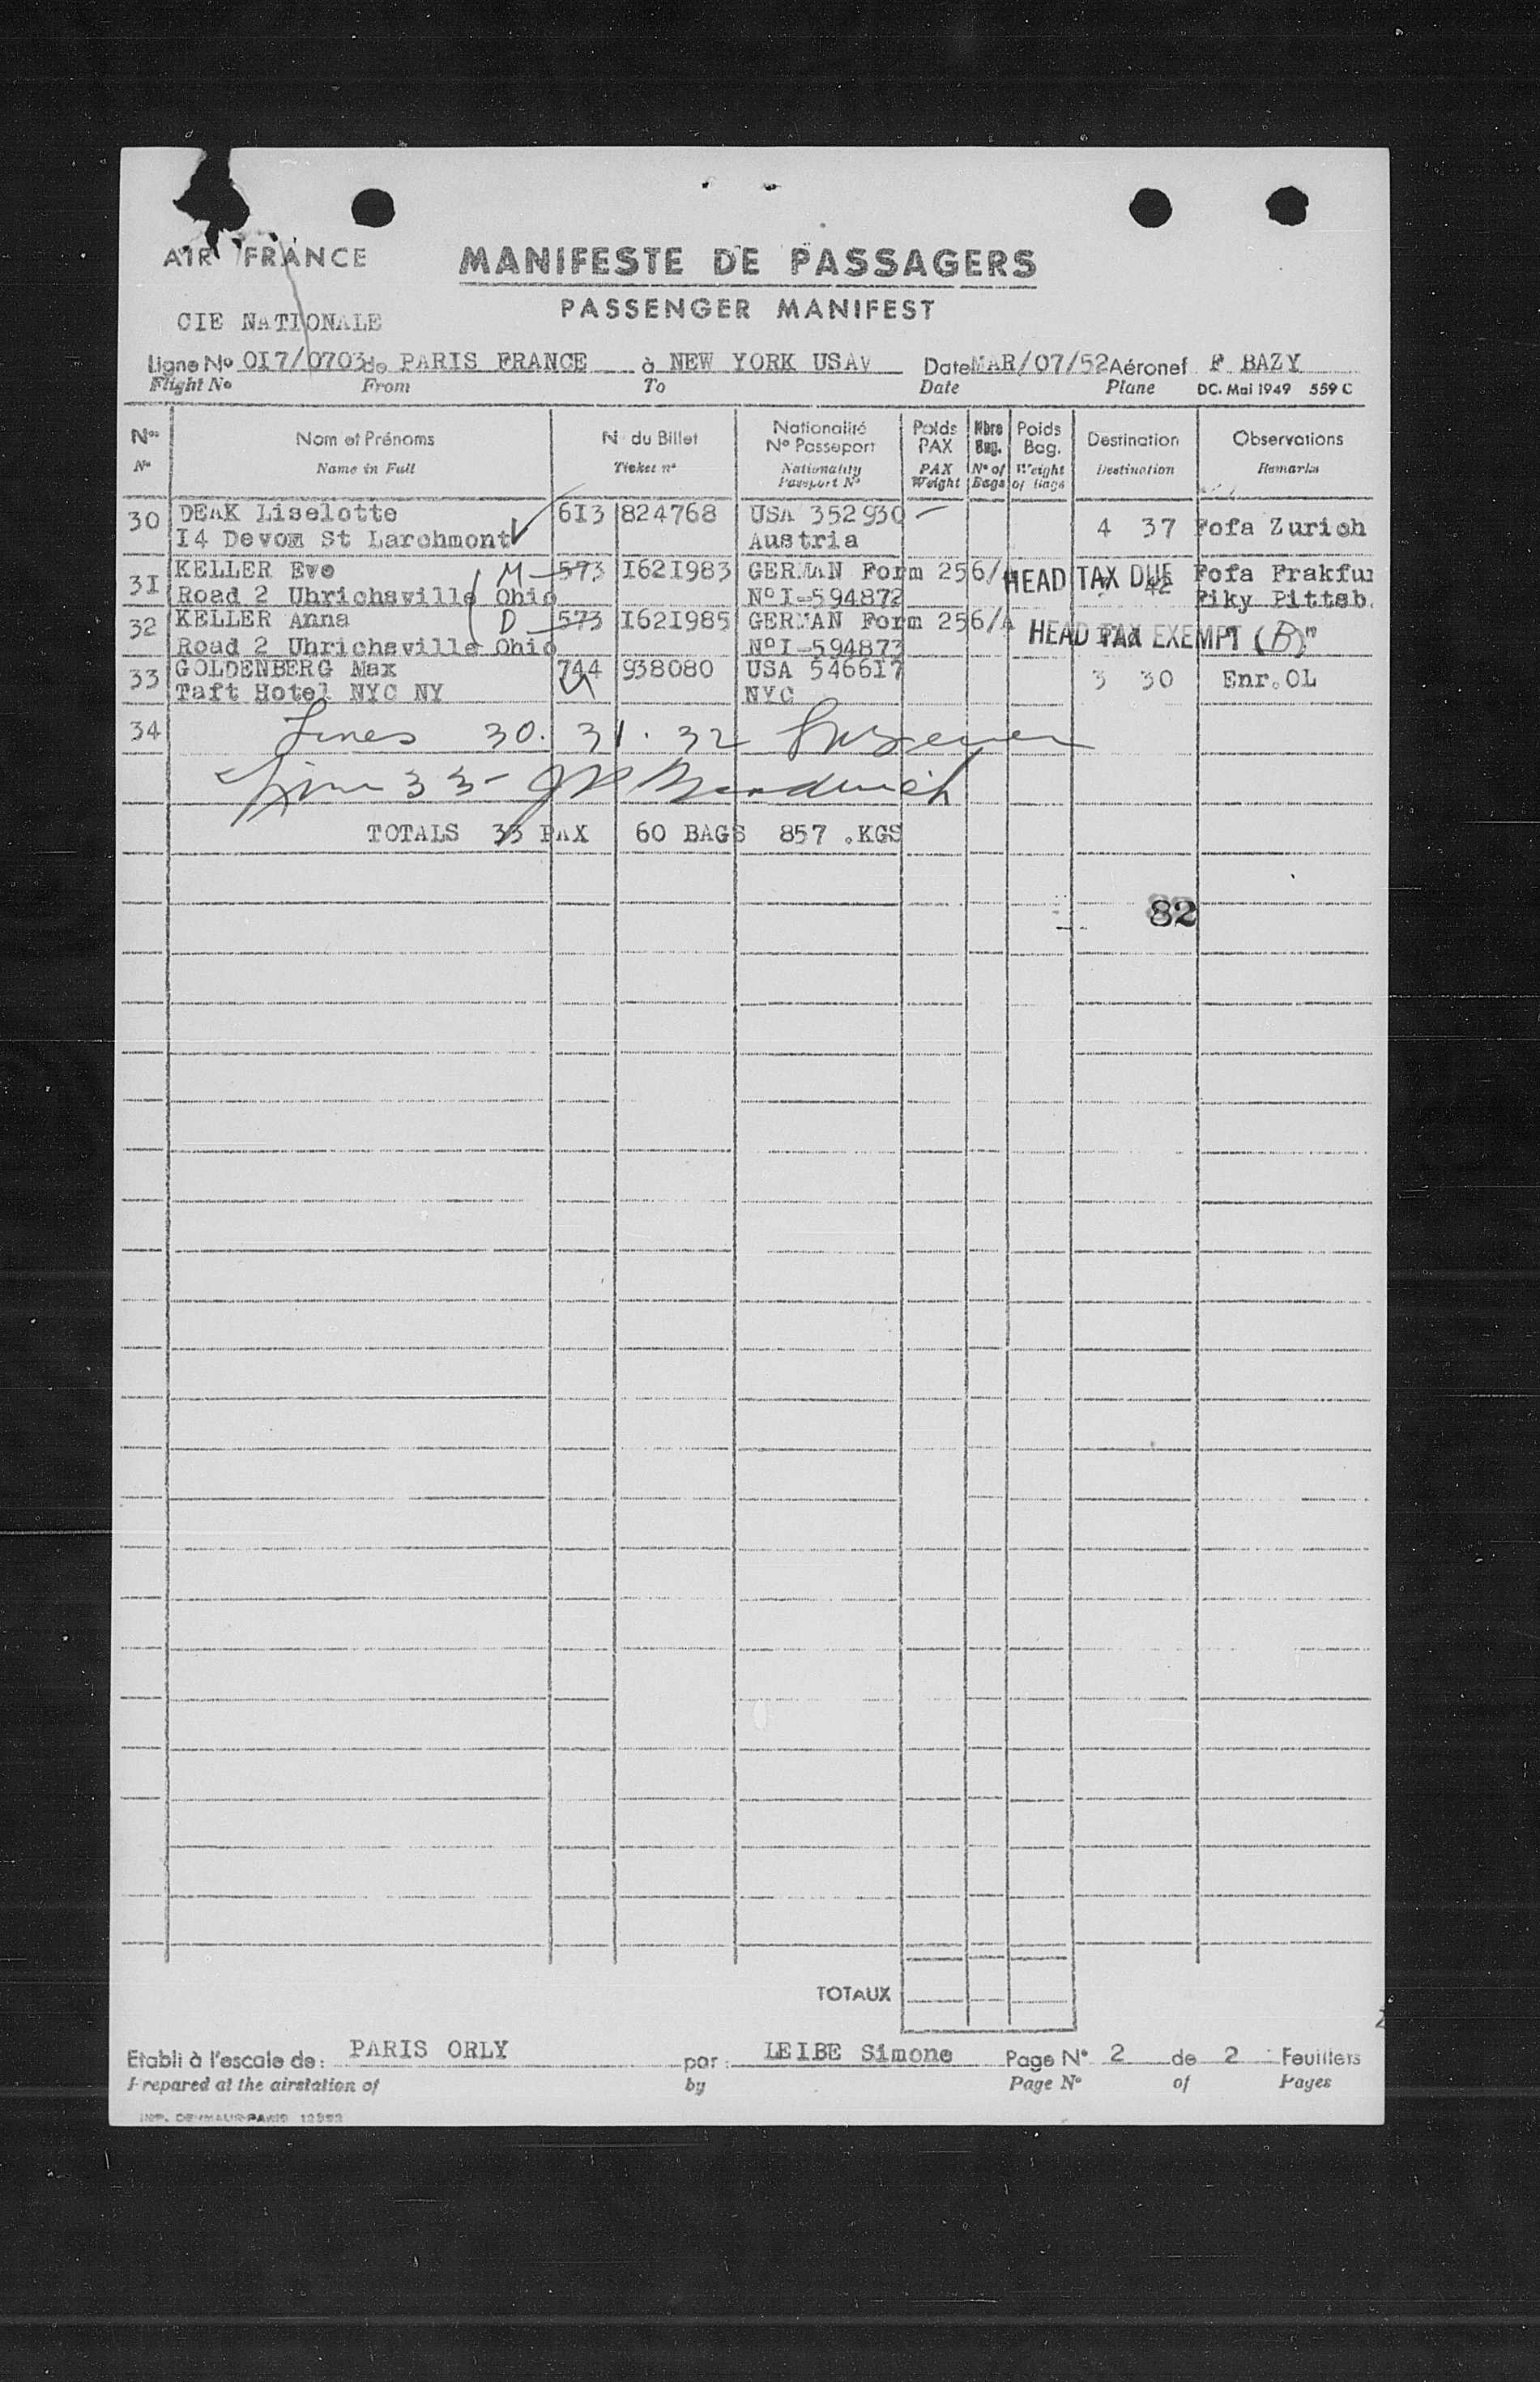 AIR FRANCE
MANIFESTE DE PASSAGERS
PASSENGER MANIFEST
CIE NATIONALE
Ligne No OI7/0703 de PARIS FRANCE à NEW YORK USA Date MAR/07/52 Aéronef F BAZY
Flight No From To Date Plane DC. Mai 1949 559 C
Nos Nom et Prénoms N° du Billet Nationalité N° Passeport Poids PAX Nbre Bag. Poids Bag. Destination Observations
N° Name in Full Ticket n° Nationality Passport N° PAX Weight N° of Bags Weight of Bags Destination Remarks
30 DEAK Liselotte 6I3 824768 USA 352930 4 37 Fofa Zurich
I4 Devom St Larchmont Austria
3I KELLER Eve M 573 I62I983 GERMAN Form 256/A HEAD TAX DUE 42 Fofa Frakfur
Road 2 Uhrichsville Ohio N°I-594872 Piky Pittsb.
32 KELLER Anna D 573 I62I985 GERMAN Form 256/A HEAD TAX EXEMPT (B) "
Road 2 Uhrichsville Ohio N°I-594873
33 GOLDENBERG Max 744 938080 USA 546617 3 30 Enr.OL
Taft Hotel NYC NY NYC
34 Lines 30. 31. 32
Line 33-
TOTALS 33 PAX 60 BAGS 857 .KGS
82
TOTAUX
Etabli à l'escale de: PARIS ORLY par: LEIBE Simone Page N° 2 de 2 Feuillets
Prepared at the airstation of by Page N° of Pages